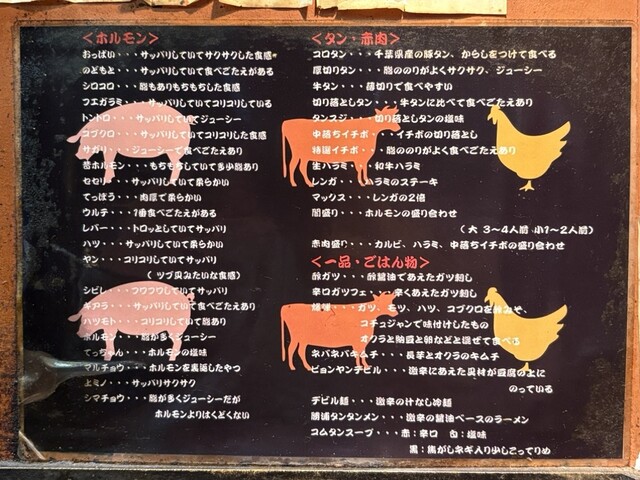 <ホルモン>
おっぱい・・・サッパリしていてサクサクした食感
のどもと・・・サッパリしていて食べごたえがある
シロコロ・・・脂もありもちもちした食感
フエガラミ・・・サッパリしていてコリコリしている
トントロ・・・サッパリしていてジューシー
コブクロ・・・サッパリしていてコリコリした食感
サガリ・・・ジューシーで食べごたえあり
若ホルモン・・・もちもちしていて多少脂あり
セセリ・・・サッパリしていて柔らかい
てっぽう・・・肉厚で柔らかい
ウルテ・・・1番食べごたえがある
レバー・・・トロッとしていてサッパリ
ハツ・・・サッパリしていて柔らかい
ヤン・・・コリコリしていてサッパリ
(ツブ貝みたいな食感)
シビレ・・・フワフワしていてサッパリ
ギアラ・・・サッパリしていて食べごたえあり
ハツモト・・・コリコリしていて脂あり
ホルモン・・・脂が多くジューシー
てっちゃん・・・ホルモンの塩味
マルチョウ・・・ホルモンを裏返したやつ
上ミノ・・・サッパリサクサク
シマチョウ・・・脂が多くジューシーだが
ホルモンよりはくどくない
<タン・赤肉>
コロタン・・・千葉県産の豚タン、からしをつけて食べる
厚切りタン・・・脂ののりがよくサクサク、ジューシー
牛タン・・・薄切りで食べやすい
切り落としタン・・・牛タンに比べて食べごたえあり
タンスジ・・・切り落としタンの塩味
中落ちイチボ・・・イチボの切り落とし
特選イチボ・・・脂ののりがよく食べごたえあり
生ハラミ・・・和牛ハラミ
レンガ・・・ハラミのステーキ
マックス・・・レンガの2倍
闇盛り・・・ホルモンの盛り合わせ
(大 3〜4人前 小1〜2人前)
赤肉盛り・・・カルビ、ハラミ、中落ちイチボの盛り合せ
<一品・ごはん物>
酢ガツ・・・酢醤油であえたガツ刺し
辛口ガツフェ・・・辛くあえたガツ刺し
・・・ガツ、モツ、ハツ、コブクロを
コチュジャンで味付けしたもの
オクラと納豆と卵などと混ぜて食べる
ネバネバキムチ・・・長芋とオクラのキムチ
ピョンヤンデビル・・・激辛にあえた具材が豆腐の上に
のっている
デビル麺・・・激辛の汁なし冷麺
勝浦タンタンメン・・・激辛の醤油ベースのラーメン
コムタンスープ・・・赤:辛口 白:塩味
黒:焦がしネギ入り少しこってりめ